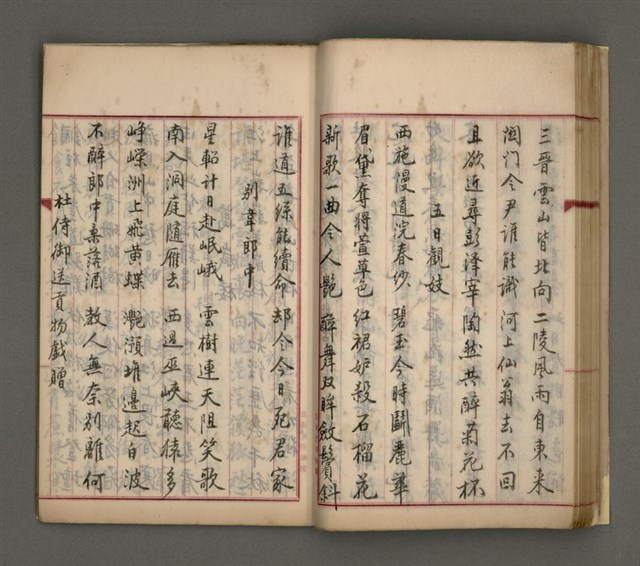 三晉雲山皆北向二陵風雨自東來
関门令尹誰能識河上仙翁去不回
且欲近尋彭澤宰陶然共醉菊花杯
五日觀妓
西施慢道浣春纱碧玉今時鬪麗華
眉黛奪將萱草色红裙妒殺石榴花
新歌一曲令人艷醉舞双眸斂鬢斜
谁道五絲能續命却令今日死君家
别韋郎中
星軺計日赴岷峨雲樹連天阻笑歌
南入洞庭随雁去西過巫峽聽猿多
峥嶸洲上飛黄蝶灩澦堆邊起白波
不醉郎中桑落酒教人無奈别離何
杜侍御送貢物戲贈